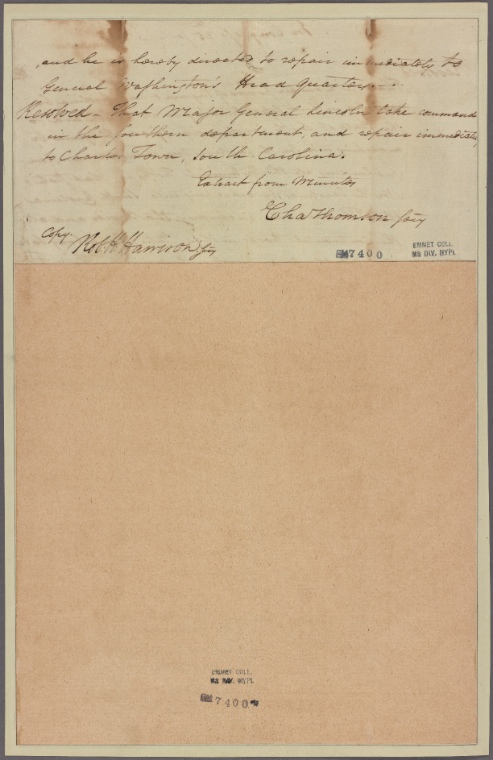 and he is hereby directed to repair immediately to
General Washington's Head Quarters.
Resolved - That Major General Lincoln take command
in the southern department, and repair immediately
to Charles Town, South Carolina.
Extract from Minutes
Cha Thomson secy
Copy.
Rob H Harrison secy
EM 7400
EMMET COLL.
MS DIV. NYPL
EMMET COLL.
MS DIV. NYPL
EM 7400